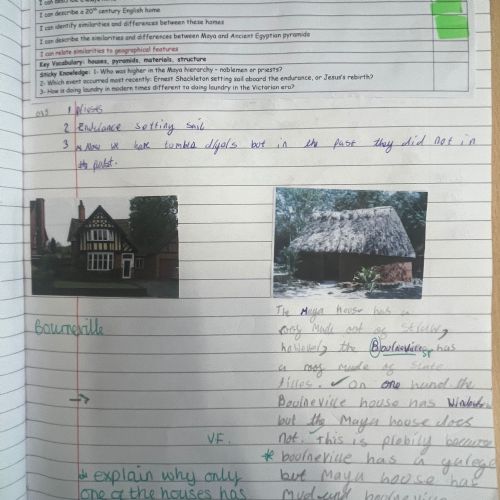 I can describe a 20th century English home
I can identify similarities and differences between these homes
I can describe the similarities and differences between Maya and Ancient Egyptian pyramids
I can relate similarities to geographical features
Key Vocabulary: houses, pyramids, materials, structure
Sticky Knowledge: 1- Who was higher in the Maya hierarchy – noblemen or priests?
2- Which event occurred most recently: Ernest Shackleton setting sail aboard the endurance, or Jesus's rebirth?
3- How is doing laundry in modern times different to doing laundry in the Victorian era?
1
2 Endulance setting sail
3 Now we have tumble but in the past they did not in
the past.
The Maya house has a
roof made out of Straw,
however, the Bourneville sp has
a roof made of slate
tilles. ✓ On one hand the
Bourneville house has
but the Maya house does
not. This is because
* bourneville has a
but Maya house has
Mud and
Bourneville
VF.
* explain why only
one of the houses has